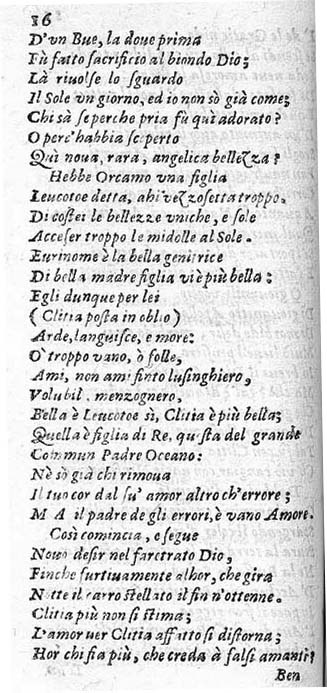 16
D'vn Bue, la doue prima
Fù fatto sacrificio al biondo Dio;
Là riuolse lo sguardo
Il Sole vn giorno, ed io non sò già come;
Chi sà se perche pria fù qui adorato?
O perc' habbia scoperto
Qui noua, rara, angelica bellezza?
Hebbe Orcamo vna figlia
Leucotoe detta, ahi vezzosetta troppo.
Di costei le bellezze vniche, e sole
Acceser troppo le midolle al Sole.
Eurinome è la bella genitrice
Di bella madre figlia viè più bella;
Egli dunque per lei
(Clitia posta in oblio)
Arde, languisce, e more:
O troppo vano, ò folle,
Ami, non ami finto lusinghiero,
Volubil, menzognero,
Bella è Leucotoe sì, Clitia è più bella;
Quella è figlia di Re, questa del grande
Commun Padre Oceano:
Nè sò già chi rimoua
Il tuo cor dal su' amor altro ch'errore;
MA il padre de gli errori, è vano Amore.
Così comincia, e segue
Nouo desir nel faretrato Dio,
Finche furtiuamente alhor, che gira
Notte il carro stellato il fin n'ottenne.
Clitia più non si stima;
L'amor uer Clitia affatto si distorna;
Hor chi fia più, che creda à falsi amanti?
Ben